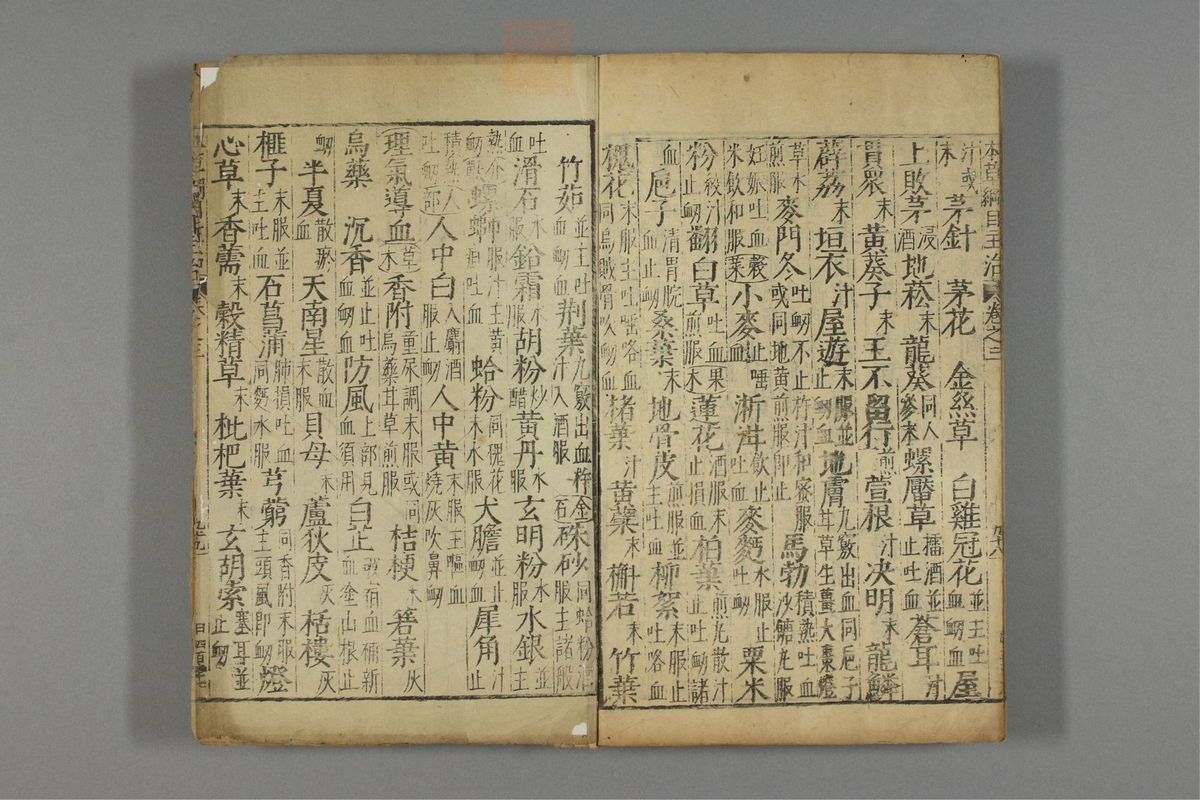 本草綱目主治 卷之三
汁或末 茅針 茅花 金絲草 白雞冠花並主吐血衂血 屋
上敗茅浸酒 地菘末 龍葵同人參末 螺厴草擂酒並止吐血 蒼耳汁
貫衆末 黃葵子末 王不留行煎 萱根汁 決明 龍鱗
薜荔末 垣衣汁 屋遊末服並止衂血 地膚九竅出血同巵子甘草生薑大棗燈
草水煎服 麥門冬吐衂不止杵汁和蜜服或同地黃煎服即止 馬勃積熱吐血沙糖丸服
妊娠吐血 穀 米飲和服 葉 小麥止唾血 淅泔飲止吐血 麥麪水服止吐衂 粟米
粉絞汁止衂 翻白草吐血煎服 蓮花酒服末止損血 柏葉煎丸散汁止吐衂諸
血 巵子清胃脘血止衂 桑葉末 地骨皮煎服並主吐血 柳絮末服止吐咯血
槐花末服主吐唾咯血同烏賊骨吹衂血 楮葉汁 黃蘗末 槲若末 竹葉
竹茹並主吐血衂血 荆葉九竅出血杵汁入酒服 金石 硃砂同蛤粉酒服主諸般
吐血 滑石水服 鉛霜水服 胡粉炒醋 黃丹水服 玄明粉水服 水銀並主
熱衂 螺 服汁主黃 蟬 吐血 蛤粉同槐花末水服 犬膽並止衂血 犀角汁止
積熱吐衂 人部 人中白入麝酒服止衂 人中黃末服主嘔血燒灰吹鼻衂
理氣導血 草木 香附童尿調末服或同烏藥甘草煎服 桔梗末 箬葉灰
烏藥 沉香並止吐血衂血 防風上部見血須用 白芷 塗山根止
衂 半夏散瘀血 天南星散血末服 貝母末 蘆荻皮灰 栝樓灰
榧子末服並主吐血 石菖蒲肺損吐血同麪水服 芎藭同香附末服主頭風即衂 燈
心草末 香薷末 穀精草末 枇杷葉末 玄胡索塞耳並止衂